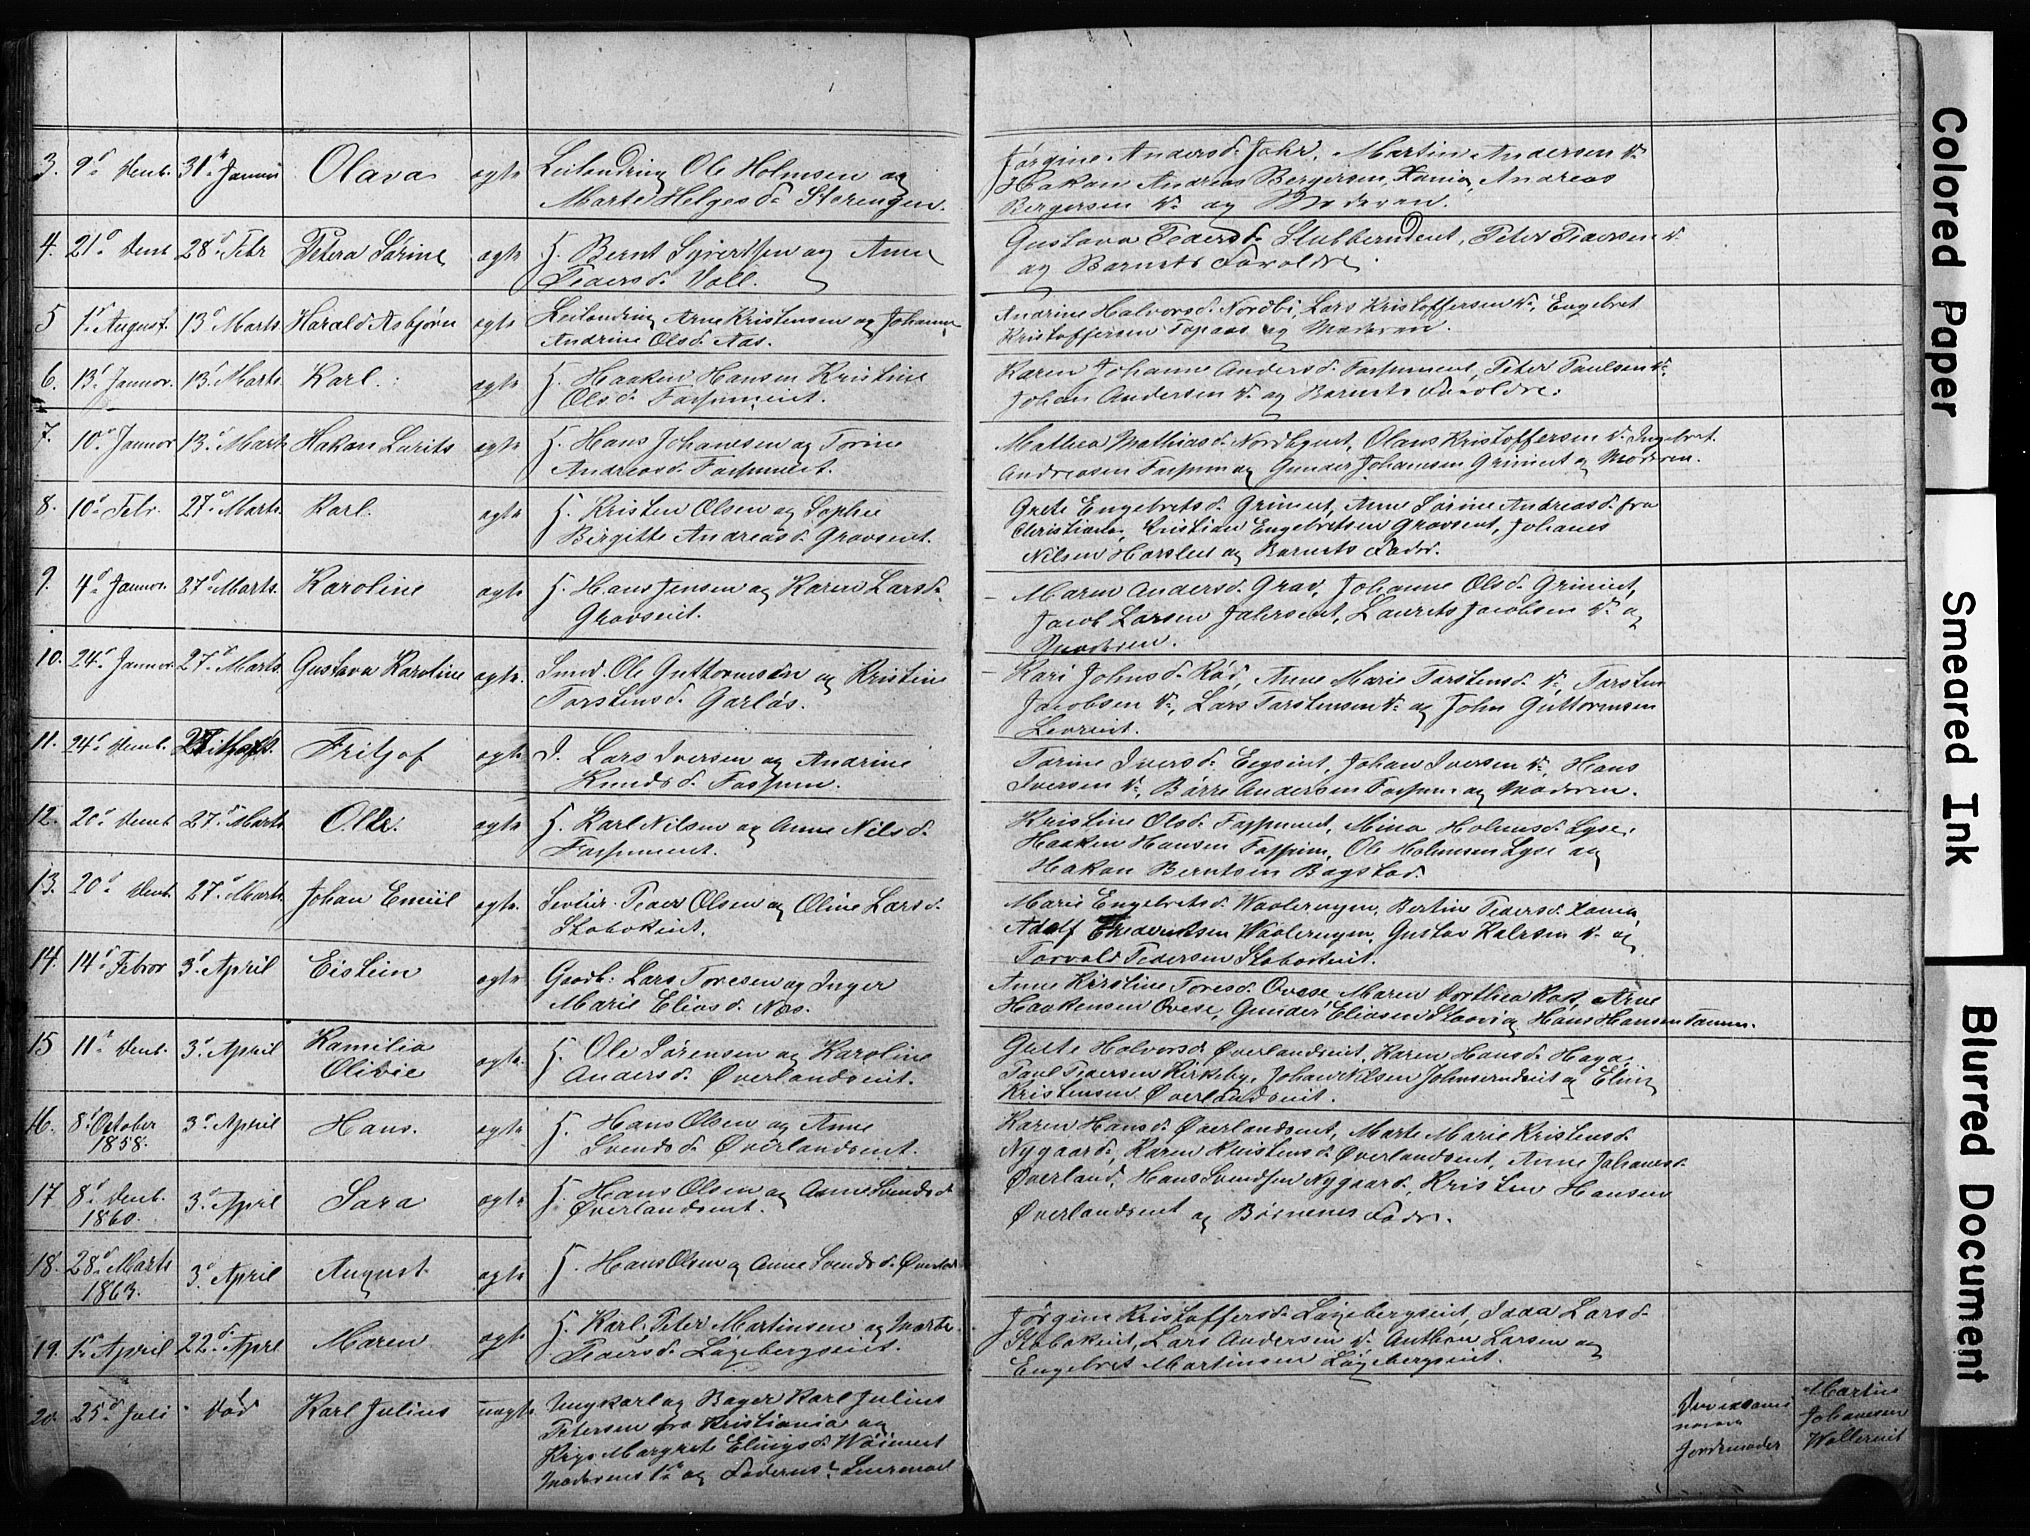 3. 9d Decb. 31te Januar Olava ægte Leilænding Ole Holmsen og
Marte Helgesd. Storengen.
Jørgine Andersd. Jahr, Martin Andersen
Hakan Andreas Bergersen, Xania, Andreas
Bergersen og Moderen.
4. 21d Decb. 28d Febr Petera Sørine ægte H. Bernt Syvertsen og Anne
Pedersd. Voll.
Gustava Pedersd. Stubberudeiet, Peter Pedersen
og Barnets Forældre.
5 1d August. 13d Marts Harald Asbjørn ægte Leilænding Arne Kristensen og Johanne
Andrine Olsd. Aas.
Andrine Halvorsd. Nordbi, Lars Kristoffersen, Engebret
Kristoffersen og Moderen.
6. 13d Januar. 13d Marts Karl. ægte H. Haaken Hansen Kristine
Olsd.
Karen Johanne Andersd. Peter Paulsen
Johan Andersen og Barnets Forældre.
7. 10d Januar 13d Marts Hakan Lurits ægte H. Hans Johanesen og Torine
Andreasd.
Mathea Mathiasd. Olaus Kristoffersen Ingebret
Andreasen og Gunder Johansen Grimeiet og Moderen.
8. 10d Febr. 27d Marts. Karl. ægte H. Kristen Olsen og Sophie
Birgitte Andreasd. Gravseiet.
Grete Engebretsd. Grimeiet, Anne Sørine Andreasd. fra
Christiania, Kristian Engebretsen Gravseiet, Johanes
Nilsen og Barnets Fader.
9. 4d Januar. 27d Marts. Karoline ægte H. Hans Jensen og Karen Larsd.
Gravseiet.
Maren Andersd. Grav, Johanne Olsd. Grimeiet,
Jacob Larsen Jahrseiet, Laurits Jacobsen og
Moderen.
10. 24d Januar 27d Marts. Gustava Karoline ægte. Smed. Ole Guttormsen og Kristine
Torstensd. Garlås.
Kari Johnsd. Rød, Anne Marie Torstensd. Torsten
Jacobsen, Lars Torstensen og John Guttormsen
11. 24d Decb. Fritjof ægte I. Lars Iversen og Andrine
Knudsd. Fossum.
Torine Iversd. Johan Iversen, Hans
Iversen, Børre Andersen Fossum og Moderen.
12. 20d Decb 27d Marts Ole. ægte H. Karl Nilsen og Anne Nilsd.
Kristine Olsd. Mina Holmsd. Lyse,
Haaken Hansen Fossum, Ole Holmsen Lyse og
Hakan Berntsen Bogstad.
13. 20d Decb. 27d Marts. Johan Emiil ægte. Peder Olsen og Oline Larsd.
Stabækeiet.
Marie Engebretsd. Waalerengen, Bertine Pedersd. Xania,
Adolf Waalerengen, Gustav Kalrsen og
Torvald Pedersen Stabækeiet.
14. 14d Febror 3d April Eistein ægte Gaardb. Lars Toresen og Inger
Marie Eliasd. Næs.
Anne Kirstine Toresd. Ovese Maren Dorthea Arne
Haakensen Ovese, Gunder Eliasen og Hans Hansen
15 11d Decb. 3d April Kamilia
Olivie ægte. H. Ole Sørensen og Karoline
Andersd. Øverlandseiet.
Halvorsd. Øverlandseiet, Karen Hansd. Haga,
Paul Pedersen Kirkeby, Johan Nilsen og
Kristensen Øverlandseiet.
16. 8d October
1858. 3d April Hans. ægte H. Hans Olsen og Anne
Svendsd. Øverlandseiet.
Karen Hansd. Øverlandseiet, Marte Marie Kristensd.
Nygaard, Karen Kristensd. Øverlandseiet, Anne Johanesd.
17 8d Decb.
1860. 3d April Sara ægte H. Hans Olsen og Anne Svendsd.
Øverlandseiet.
Øverland, Hans Svendsen Nygaard, Kristen Hansen
Øverlandseiet og Børnenes Fader.
18. 28d Marts
1863. 3d April August ægte H. Hans Olsen og Anne Svendsd.
19. 1d April 22d Aprl Maren ægte H. Karl Peter Martinsen og Marte
Pedersd. Løgebergseiet.
Jørgine Kristoffersd. Løgebergseiet, Larsd.
Stabækeiet, Lars Andersen Anthon Larsen og
Engebret Martinsen Løgebergseiet.
20. 25d Juli Død Karl Julius uægte Ungkarl og Bager Karl Julius
Petersen fra Kristiania og
Pige Margrete Elingsd.
Moderens og Faderens
Jordemoder
Martin
Johanesen
Colored Paper
Smeared Ink
Blurred Document